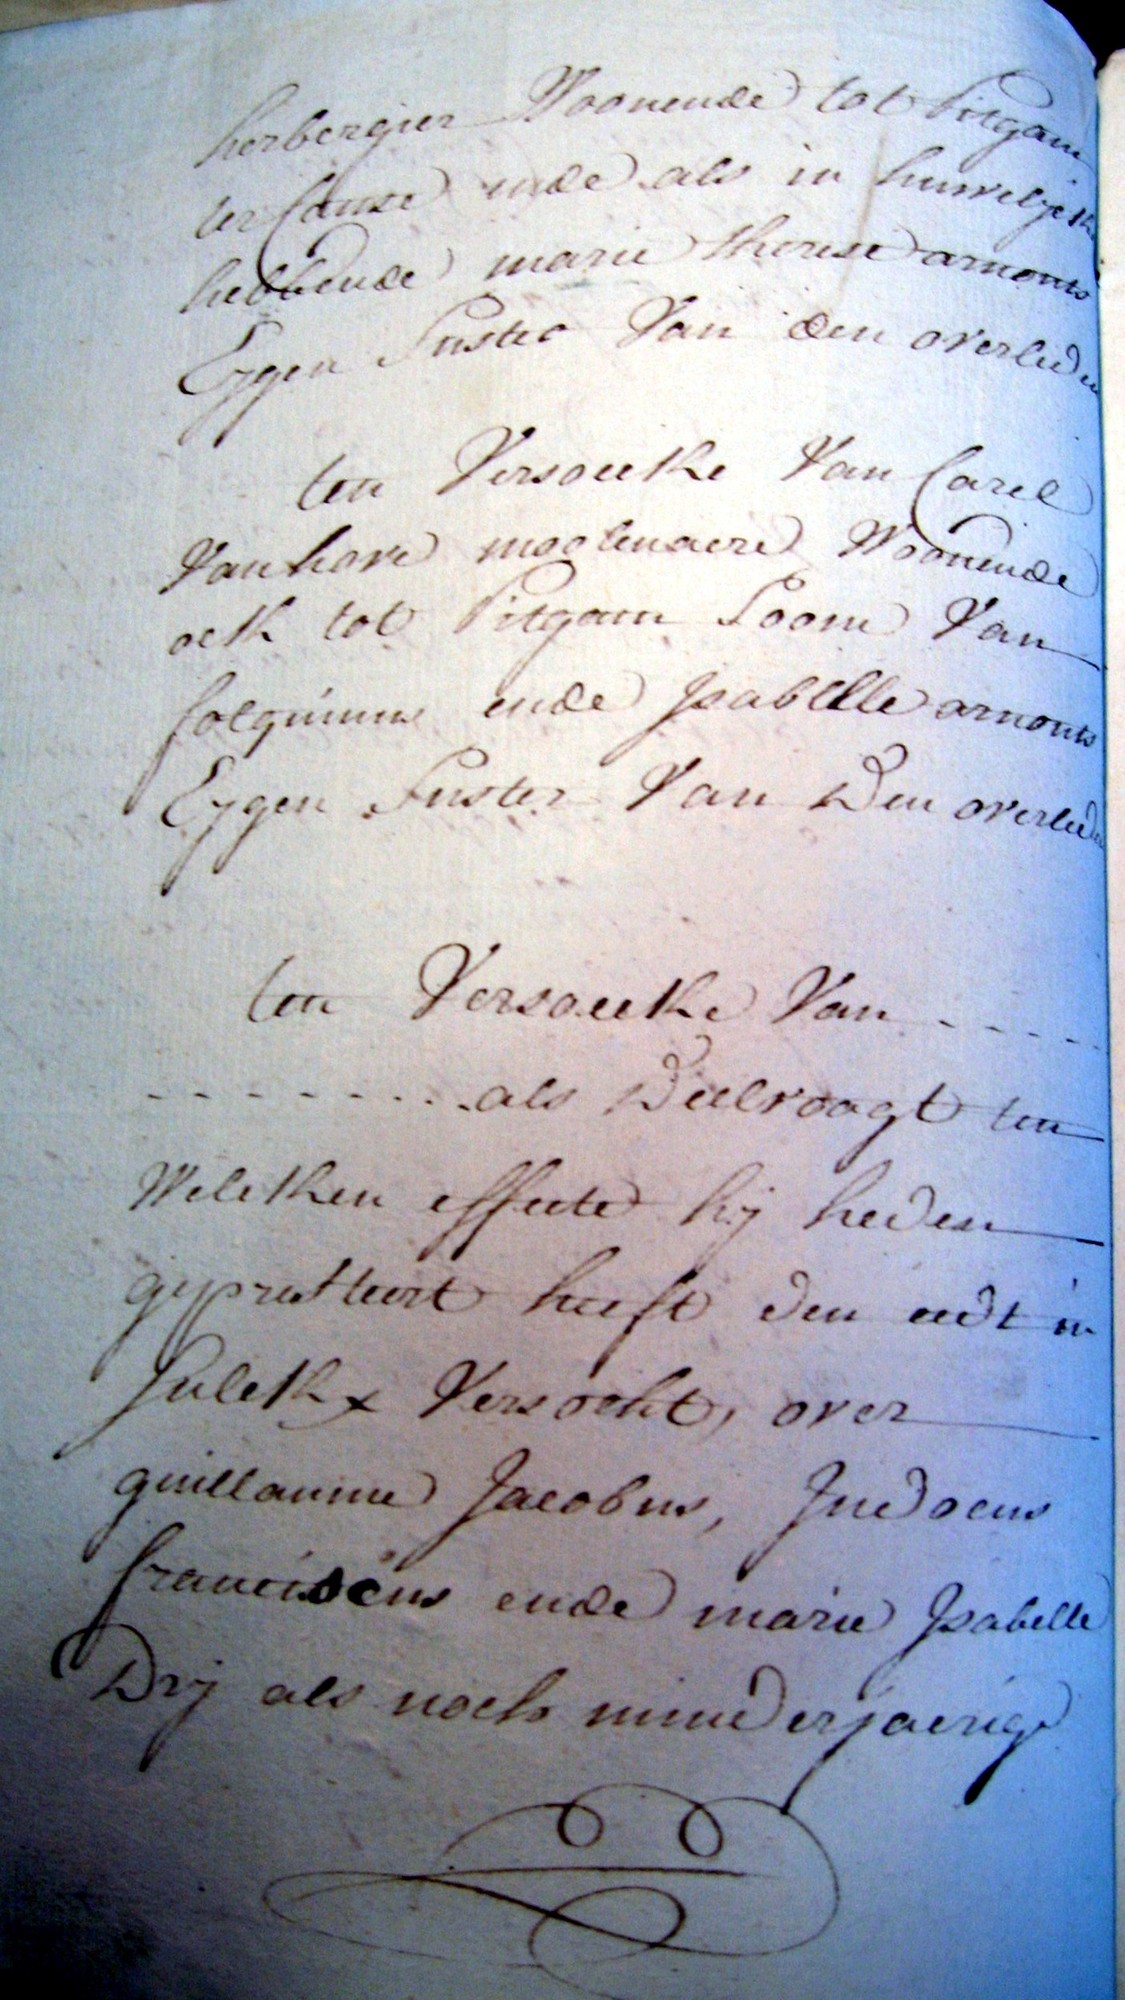 herbergier Woonende tot Pitgam
ter Causse ende als in huwelyck
hebbende marie therese arnouts
Eygen Suster Van den overleden
ten Versoecke Van Carel
Vanhove meolenaere Woonende
oock tot Pitgam Soone Van
folquinus ende Isabelle arnouts
Eygen Suster Van Den overleden
ten Versoecke Van - - - -
- - - - - - - - als Deelvoogt ten
Welcken effecte hij heden
gepresteert heeft den eedt in
sulckx Versocht, over
guillaume Jacobus, Judocus
franciscus ende marie Isabelle
Drij als noch minderjaerige